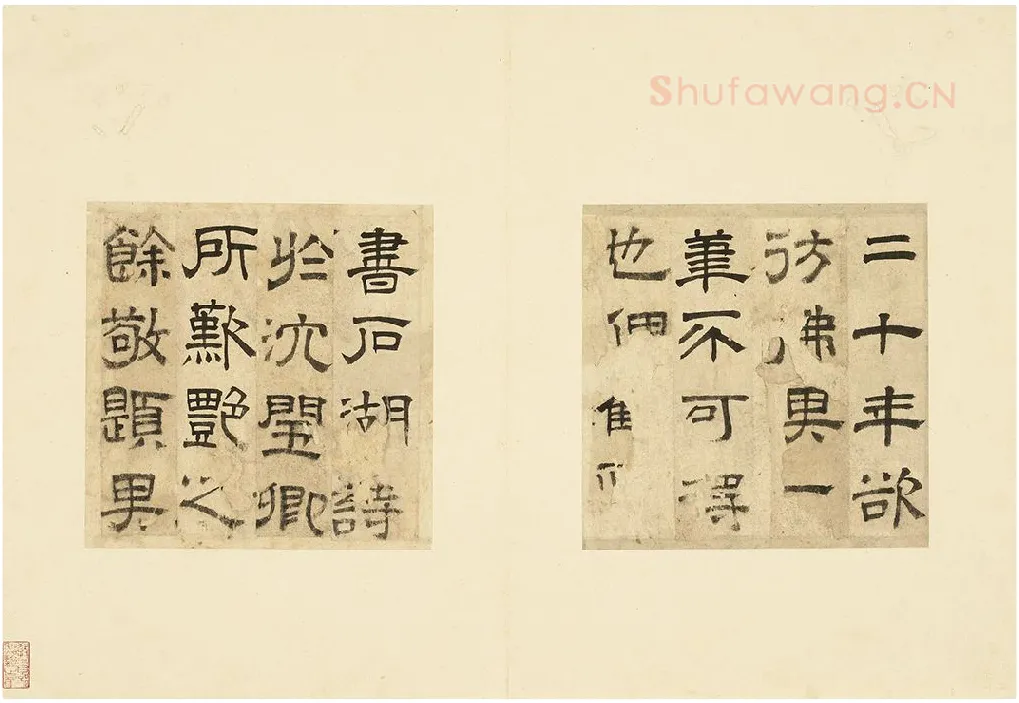 Shufawang.CN
二十年欲
彷彿其一
筆不可得
也
書石湖詩
於沈閏卿
所歎艷之
餘敬題其